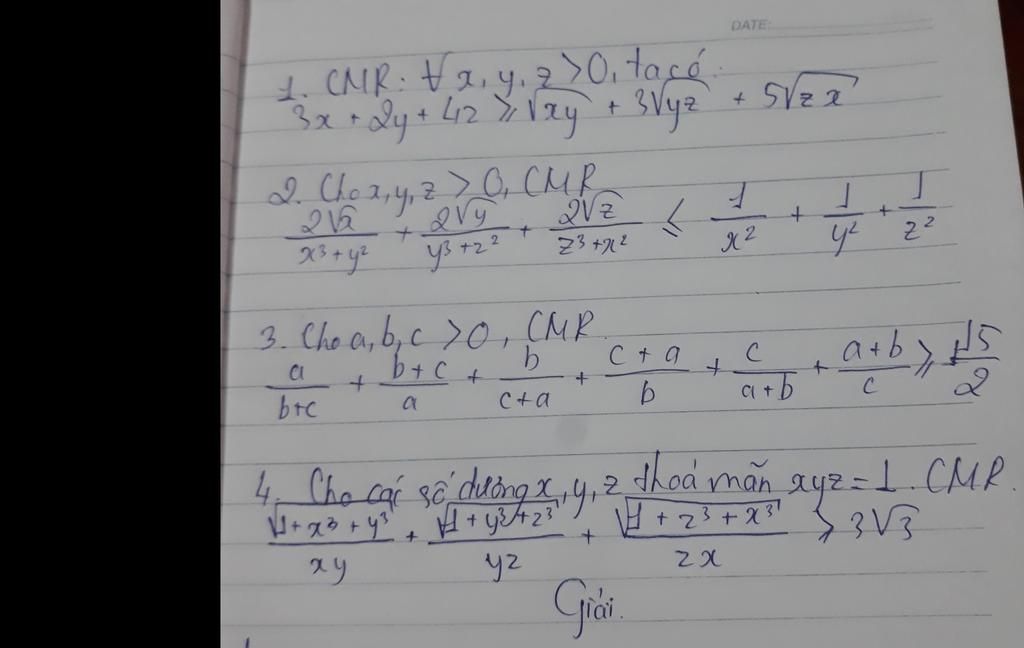 DATE:
1. CMR: ∀ x, y, z > 0, ta có.
3x + 2y + 4z ≥ √xy + 3√yz + 5√zx
2. Cho x, y, z > 0, CMR
2√x/(x³+y²) + 2√y/(y³+z²) + 2√z/(z³+x²) ≤ 1/x² + 1/y² + 1/z²
3. Cho a, b, c > 0, CMR
a/(b+c) + (b+c)/a + b/(c+a) + (c+a)/b + c/(a+b) + (a+b)/c ≥ 15/2
4. Cho các số dương x, y, z thoả mãn xyz = 1. CMR.
√(1+x³+y³)/xy + √(1+y³+z³)/yz + √(1+z³+x³)/zx ≥ 3√3
Giải.